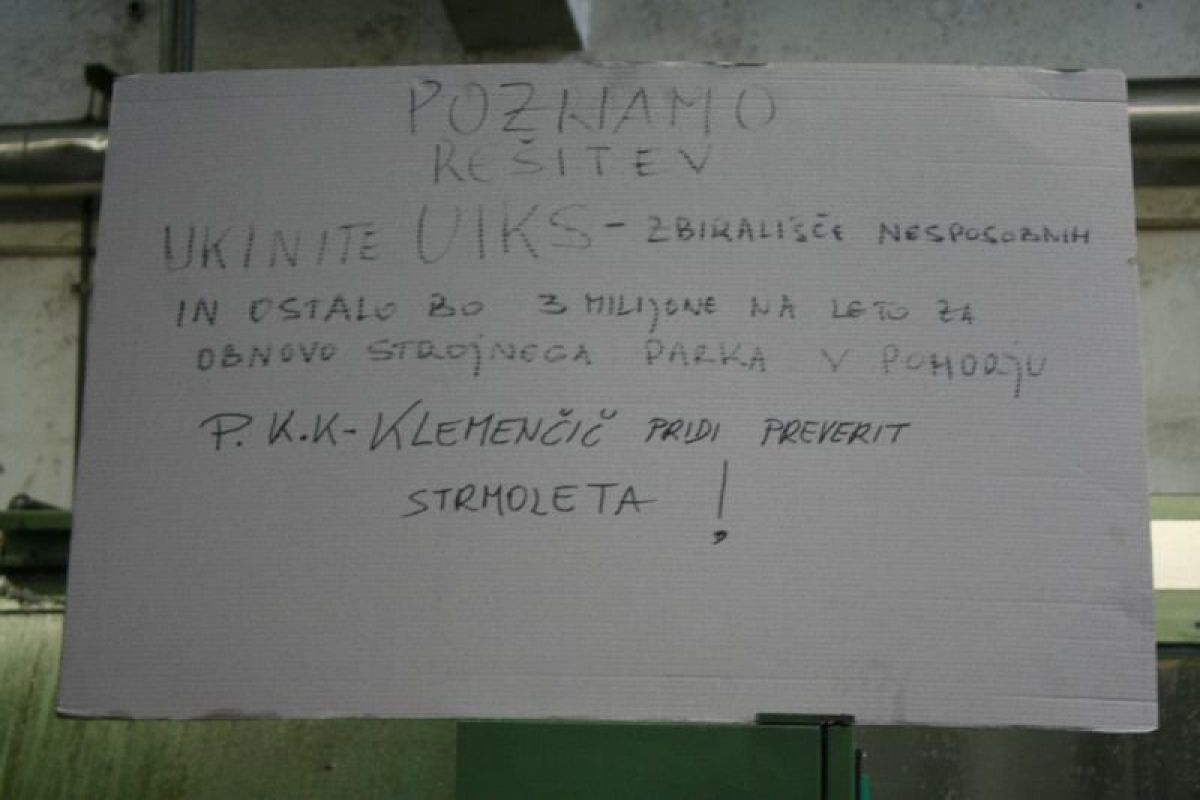 POZNAMO
REŠITEV
UKINITE UIKS - ZBIRALIŠČE NESPOSOBNIH
IN OSTALO BO 3 MILIJONE NA LETO ZA
OBNOVO STROJNEGA PARKA V POHORJU
P. K.K - KLEMENČIČ PRIDI PREVERIT
STRMOLETA !